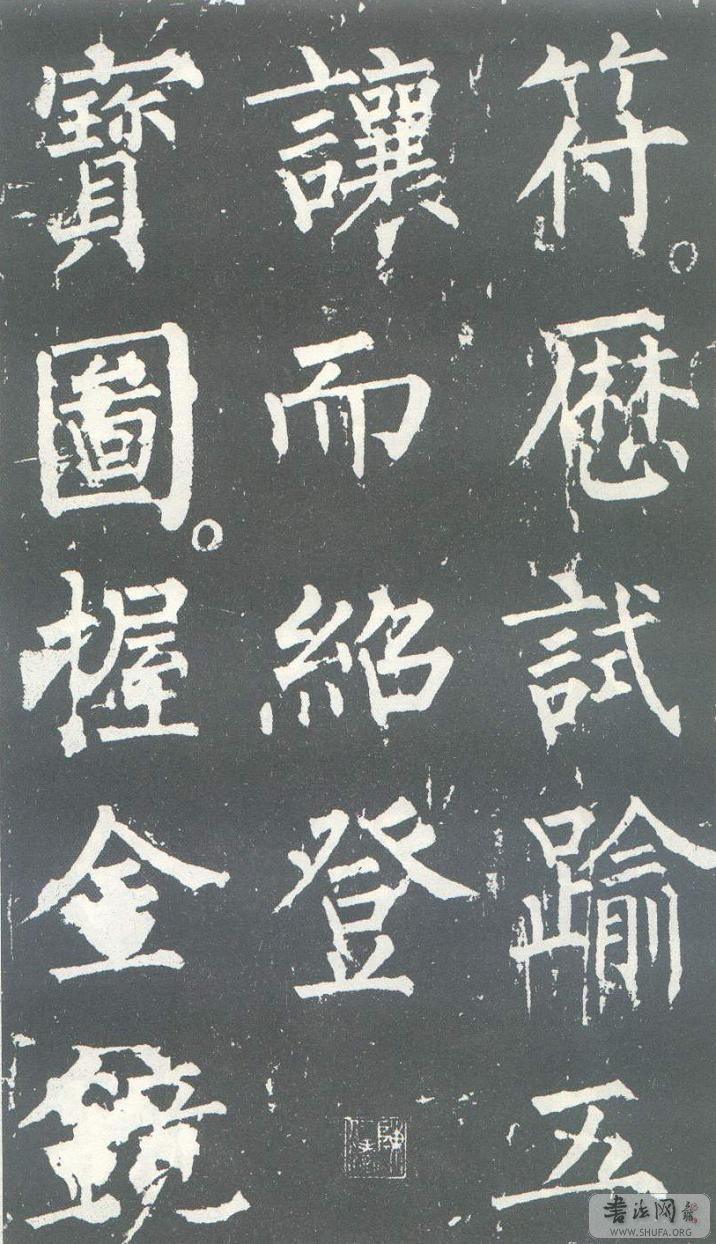 符。歷試踰五
讓而紹登
寶圖。握金鏡
書法网
WWW.SHUFA.ORG